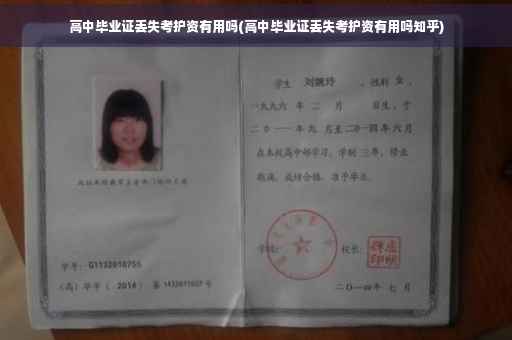 高中毕业证丢失考护资有用吗(高中毕业证丢失考护资有用吗知乎)
学生 刘婉玲 ，性别 女 ，
一九九六 年 二 月 日生，于
二〇一一年九 月至二〇一四年六月
在本校高中部学习，学制 三年，修业
期满，成绩合格，准予毕业。
学号： G1132010755
(高) 毕字 ( 2014 ) 第 1432011027 号
学校：
校长：
二〇一四年 七 月